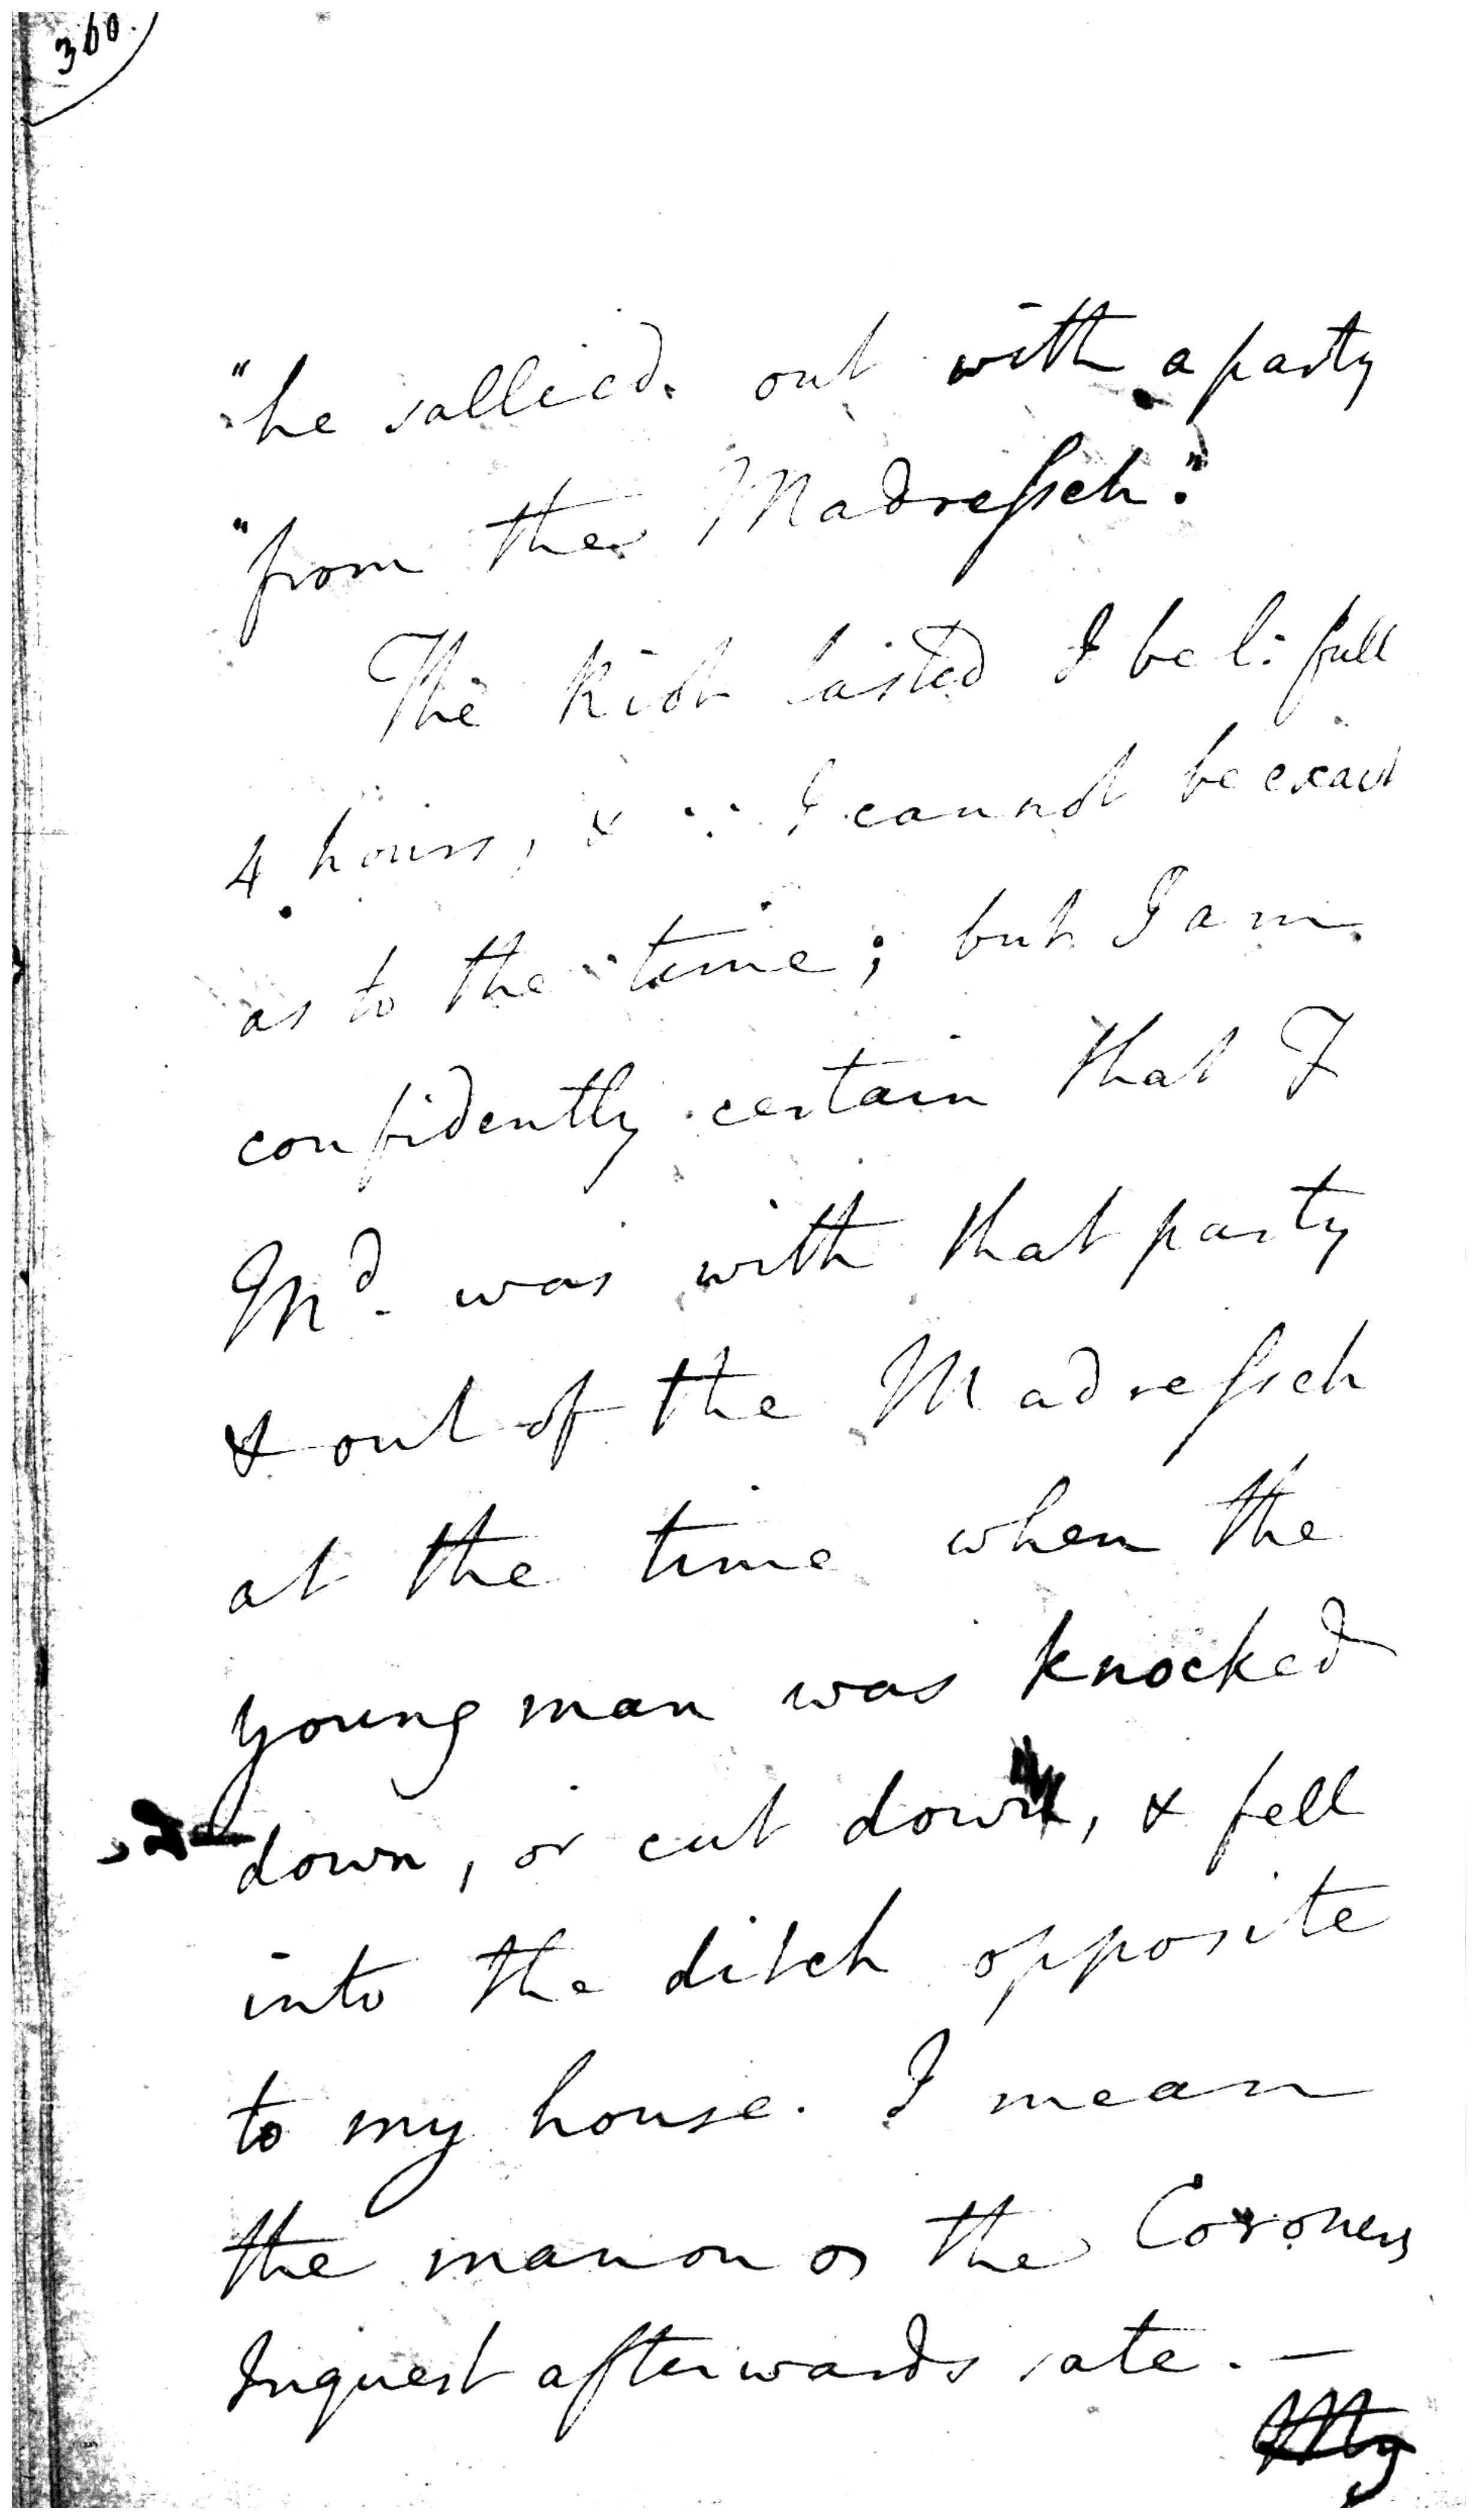 360.
"he sallied out with a party
"from the Madresseh."
The Riot lasted I bel: full
4 hours, & ∵ I cannot be exact
as to the time; but I am
confidently certain that F
Md. was with that party
& out of the Madresseh
at the time when the
young man was knocked
down, or cut down, & fell
into the ditch opposite
to my house. I mean
the man on os the Coroners
Inquest afterwards sate. —
My